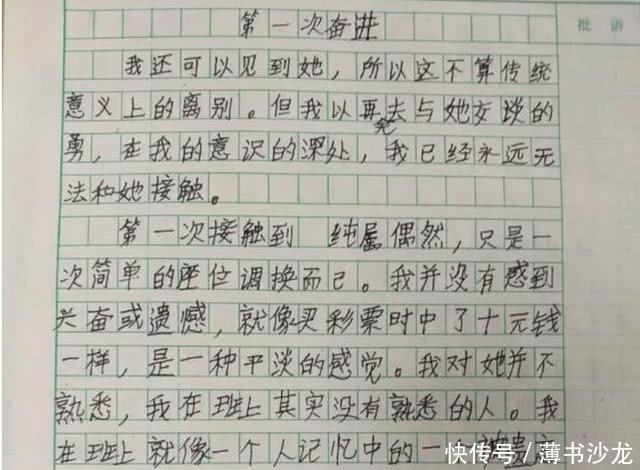 第一次奋进
批语
我还可以见到她，所以这不算传统
意义上的离别。但我以再去与她交谈的
勇，在我的意识的深处，我已经永远无
法和她接触。
第一次接触到 纯属偶然，只是一
次简单的座位调换而已。我并没有感到
兴奋或遗憾，就像买彩票时中了十元钱
一样，是一种平淡的感觉。我对她并不
熟悉，我在班上其实没有熟悉的人。我
在班上就像一个人记忆中的一
快传号／薄书沙龙